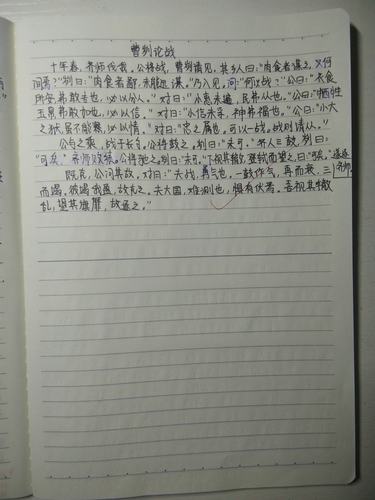 曹刿论战
十年春,齐师伐我。公将战,曹刿请见。其乡人曰:"肉食者谋之,又何
间焉?"刿曰:"肉食者鄙,未能远谋。"乃入见,问:"何以战?"公曰:"衣食
所安,弗敢专也,必以分人。"对曰:"小惠未遍,民弗从也。"公曰:"牺牲
玉帛,弗敢加也,必以信。"对曰:"小信未孚,神弗福也。"公曰:"小大
之狱,虽不能察,必以情。"对曰:"忠之属也,可以一战,战则请从。"
公与之乘,战于长勺。公将鼓之。刿曰:"未可。"齐人三鼓,刿曰:
"可矣。"齐师败绩。公将驰之。刿曰:"未可。"下视其辙,登轼而望之,曰:"可矣。"遂逐
齐师。
既克,公问其故。对曰:"夫战,勇气也。一鼓作气,再而衰,三
而竭。彼竭我盈,故克之。夫大国,难测也,惧有伏焉。吾视其辙
乱,望其旗靡,故逐之。"